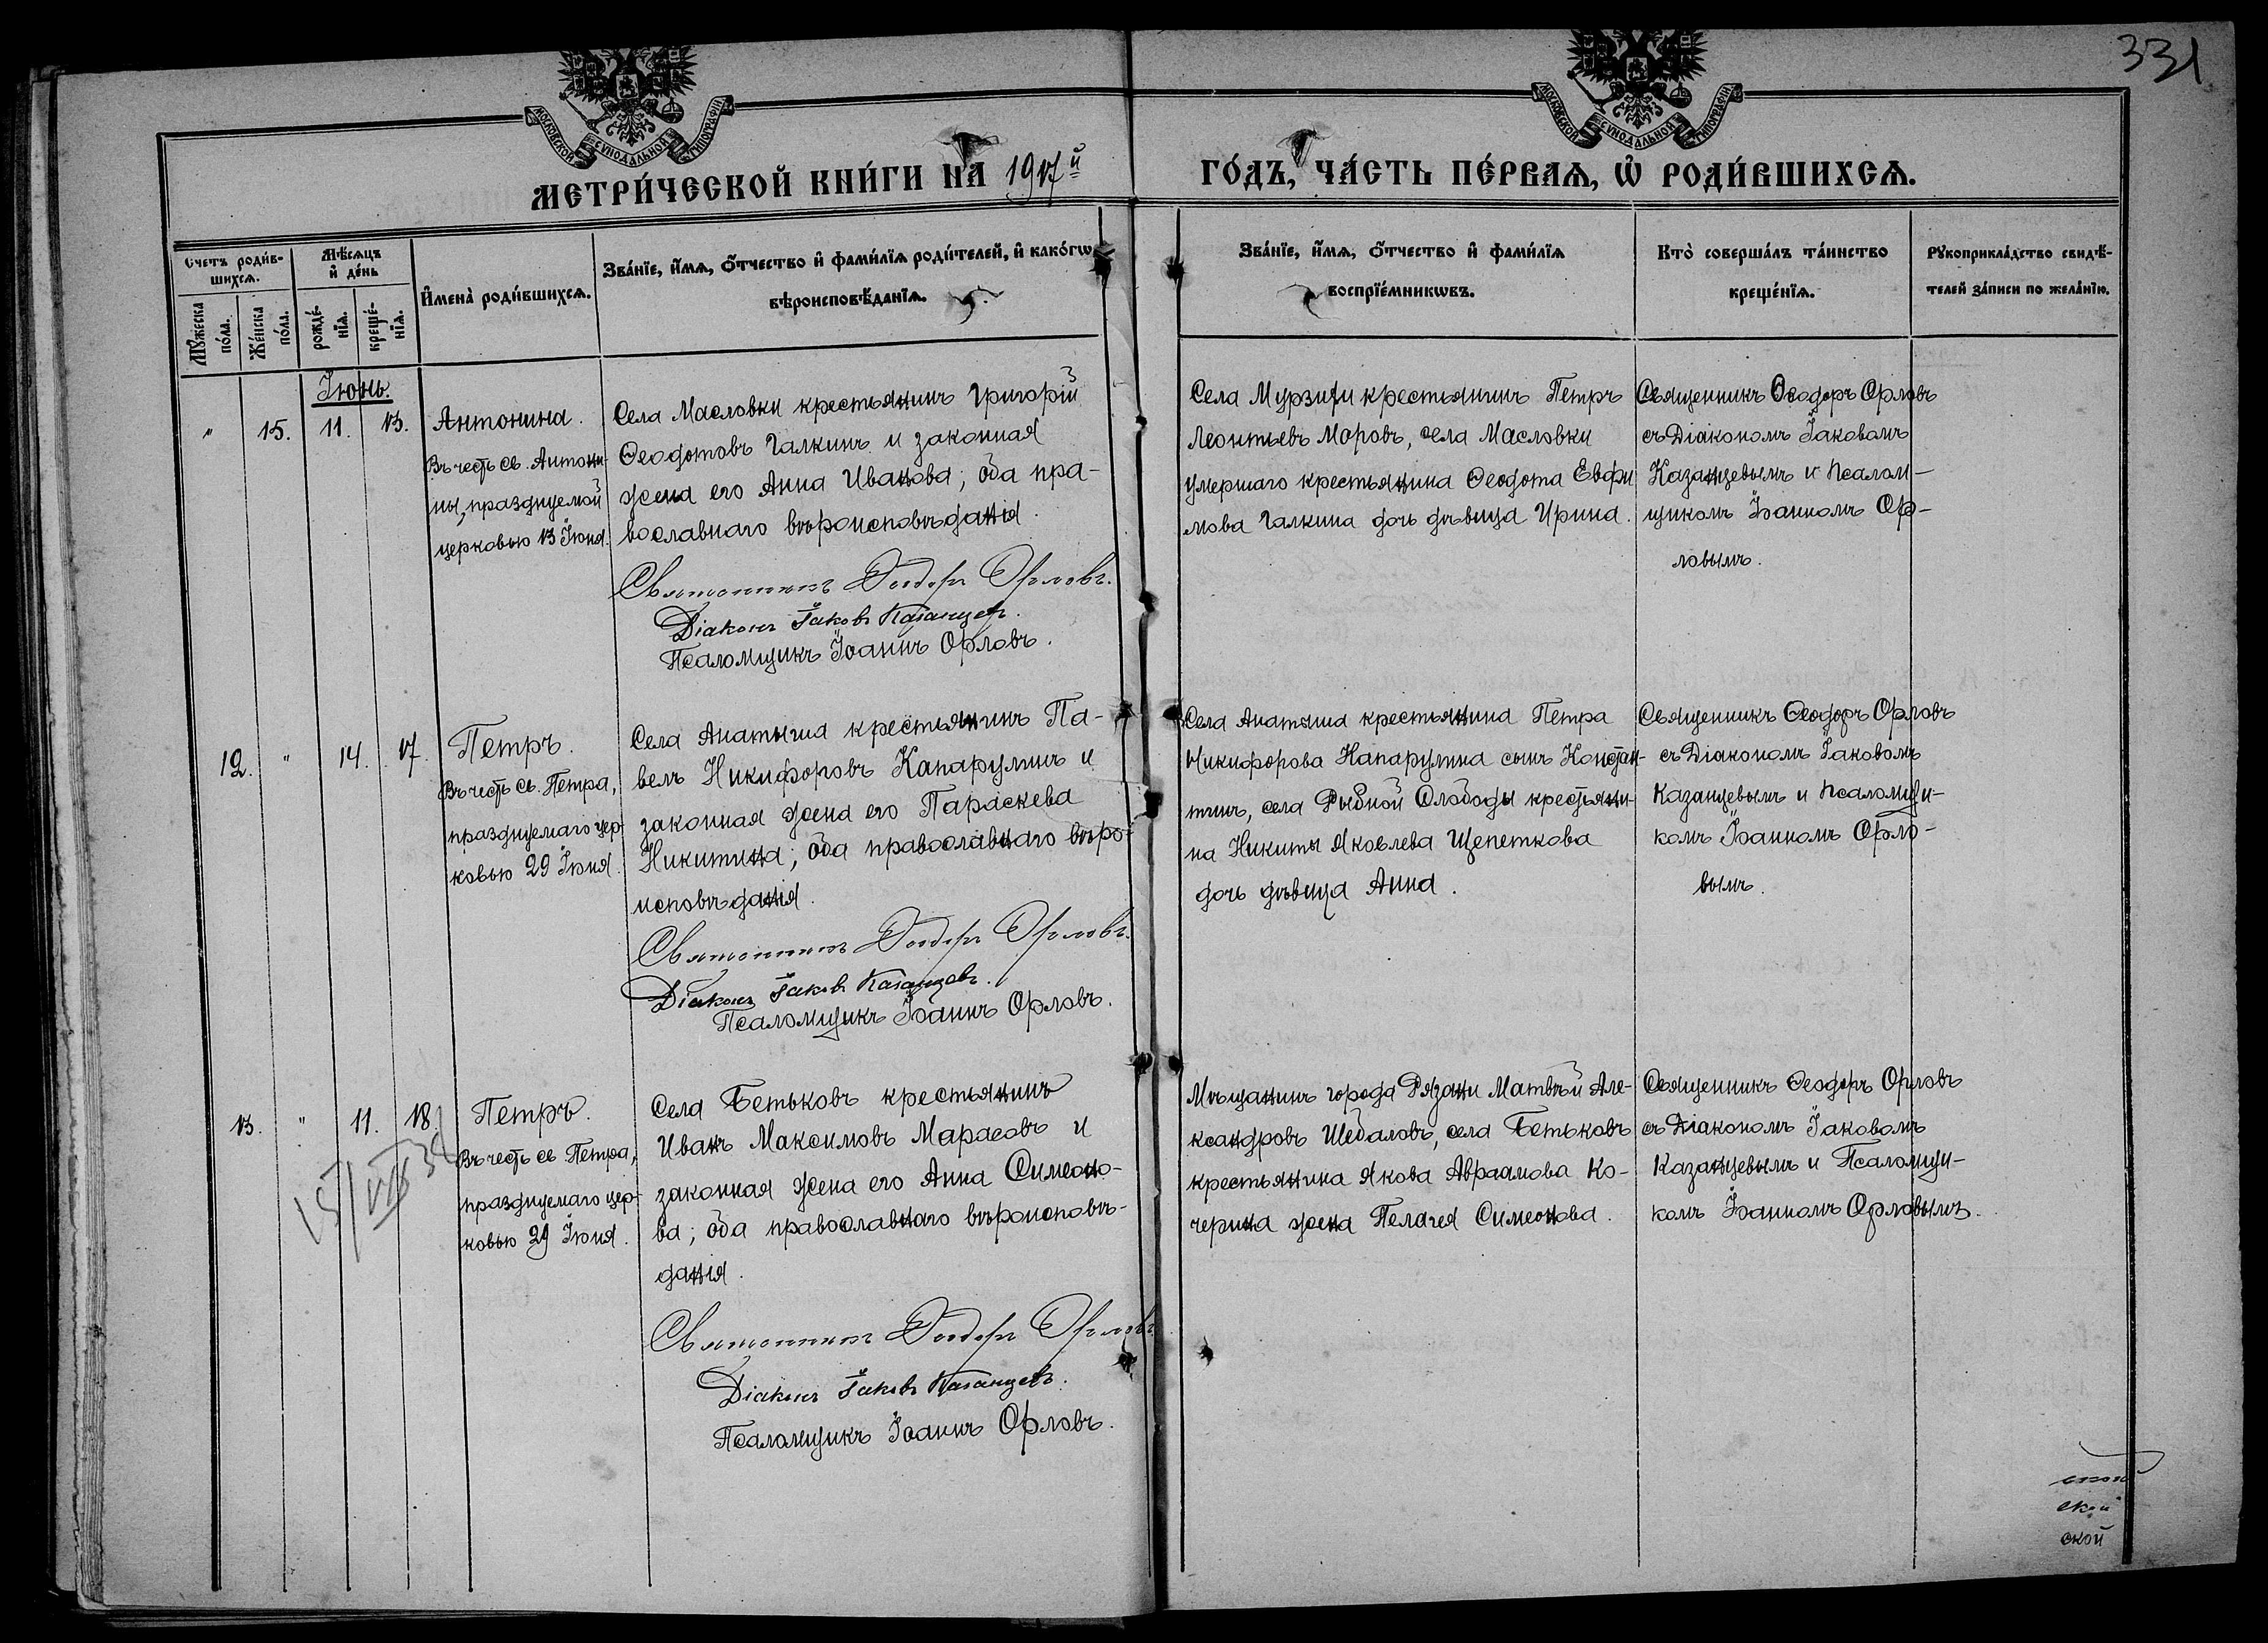 331
МОСКОВСКОЙ СѴНОДАЛЬНОЙ ТИПОГРАФІИ
МОСКОВСКОЙ СѴНОДАЛЬНОЙ ТИПОГРАФІИ
МЕТРИ́ЧЕСКОЙ КНИ́ГИ НА 1917й
ГО́ДЪ, ЧА́СТЬ ПЕ́РВАѦ, Ѡ҆ РОДИ́ВШИХСѦ.
Счетъ роди́в-
шихсѧ.
Мꙋ́жеска
по́ла.
Же́нска
по́ла.
Мѣ́сѧцъ
и҆ де́нь
рожде́-
нїѧ.
креще́-
нїѧ.
И҆мена̀ роди́вшихсѧ.
Зва́нїе, и҆́мѧ, ѻ҆́тчество и҆ фами́лїѧ роди́телей, и҆ како́гѡ
вѣроисповѣ́данїѧ.
Зва́нїе, и҆́мѧ, ѻ҆́тчество и҆ фами́лїѧ
воспрїе́мникѡвъ.
Кто̀ соверша́лъ та́инство
креще́нїѧ.
Рꙋкоприкла́дство свидѣ́-
телей за́писи по жела́нїю.
Іюнь.
" 15. 11. 13.
Антонина.
Въ честь св. Антони-
ны, празднуемой
церковью 13 Іюня.
Села Масловки крестьянинъ Григорій
Ѳеодотовъ Галкинъ и законная
жена его Анна Иванова; оба пра-
вославнаго вѣроисповѣданія.
Священникъ Ѳеодоръ Орловъ.
Діаконъ Іаковъ Казанцевъ.
Псаломщикъ Іоаннъ Орловъ.
Села Мурзихи крестьянинъ Петръ
Леонтьевъ Моровъ, села Масловки
умершаго крестьянина Ѳеодота Евфи
мова Галкина дочь дѣвица Ирина.
Священникъ Ѳеодоръ Орловъ
съ Діакономъ Іаковомъ
Казанцевымъ и псалом-
щикомъ Іоанномъ Ор-
ловымъ.
12. " 14. 17.
Петръ.
Въ честь св. Петра,
празднуемаго цер-
ковью 29 Іюня.
Села Анатыша крестьянинъ Па-
велъ Никифоровъ Капарулинъ и
законная жена его Параскева
Никитина; оба православнаго вѣро-
исповѣданія.
Священникъ Ѳеодоръ Орловъ.
Діаконъ Іаковъ Казанцевъ.
Псаломщикъ Іоаннъ Орловъ.
Села Анатыша крестьянина Петра
Никифорова Капарулина сынъ Констан-
тинъ, села Рыбной Слободы крестьяни-
на Никиты Яковлева Щепеткова
дочь дѣвица Анна.
Священникъ Ѳеодоръ Орловъ
съ Діакономъ Іаковомъ
Казанцевымъ и псаломщи-
комъ Іоанномъ Орло-
вымъ.
13. " 11. 18.
Петръ.
Въ честь св. Петра,
празднуемаго цер-
ковью 29 Іюня.
Села Бетьковъ крестьянинъ
Иванъ Максимовъ Марасовъ и
законная жена его Анна Симеоно-
ва; оба православнаго вѣроисповѣ-
данія.
Священникъ Ѳеодоръ Орловъ
Діаконъ Іаковъ Казанцевъ.
Псаломщикъ Іоаннъ Орловъ.
Мѣщанинъ города Рязани Матвѣй Але-
ксандровъ Шебаловъ, села Бетьковъ
крестьянина Якова Авраамова Ко-
черина жена Пелагея Симеонова.
Священникъ Ѳеодоръ Орловъ
съ Діакономъ Іаковомъ
Казанцевымъ и Псаломщи-
комъ Іоанномъ Орловымъ.
ской
ской